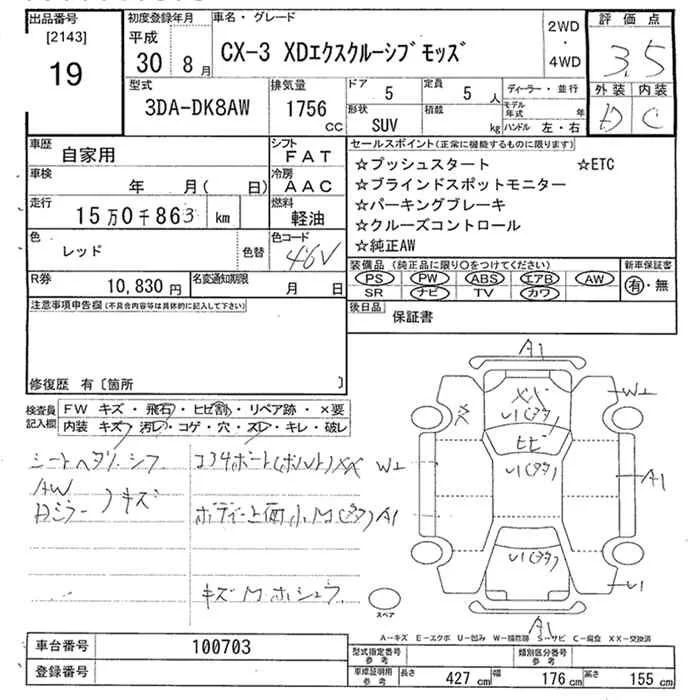 出品番号
[2143]
19
初度登録年月
平成
30 8月
車名・グレード
CX-3 XDエクスクルーシブモッズ
2WD
・
4WD
評価点
3.5
外装 内装
D C
型式
3DA-DK8AW
排気量
1756
CC
ドア
5
定員
5 人
形状
SUV
積載
kg
ディーラー・並行
モデル年式 年
ハンドル 左・右
車歴
自家用
シフト
FAT
車検
年 月( 日)
冷房
AAC
走行
15万0千863 km
燃料
軽油
色
レッド
色替
色コード
46V
R券
10,830 円
名変通知期限
月 日
セールスポイント(正常に機能するものに限ります)
☆プッシュスタート ☆ETC
☆ブラインドスポットモニター
☆パーキングブレーキ
☆クルーズコントロール
☆純正AW
装備品(純正品に限り○をつけてください)
PS PW ABS エアB AW
SR ナビ TV カワ
新車保証書
有・無
後日品
保証書
注意事項申告欄(不具合内容等は具体的に記入して下さい)
修復歴 有〔箇所 〕
検査員記入欄
FW キズ・飛石・ヒビ割・リペア跡・×要
内装 キズ・汚レ・コゲ・穴・スレ・キレ・破レ
シートヘタリ、シワ
AW
Dミラー
キズ
コアサポート(ボルト)XX
ボディー上面小M(多)
キズM ホシュウ
A1
W2
XX
U1(多)
ヒビ
×
U1(多)
W2
A1
A1
U1(多)
U1
A1
スペア
A-キズ E-エクボ U-凹み W-補修跡 S-サビ C-腐食 XX-交換済
車台番号
100703
登録番号
型式指定番号
参考
類別区分番号
参考
車庫証明用
参考
長さ 427 cm 幅 176 cm 高さ 155 cm